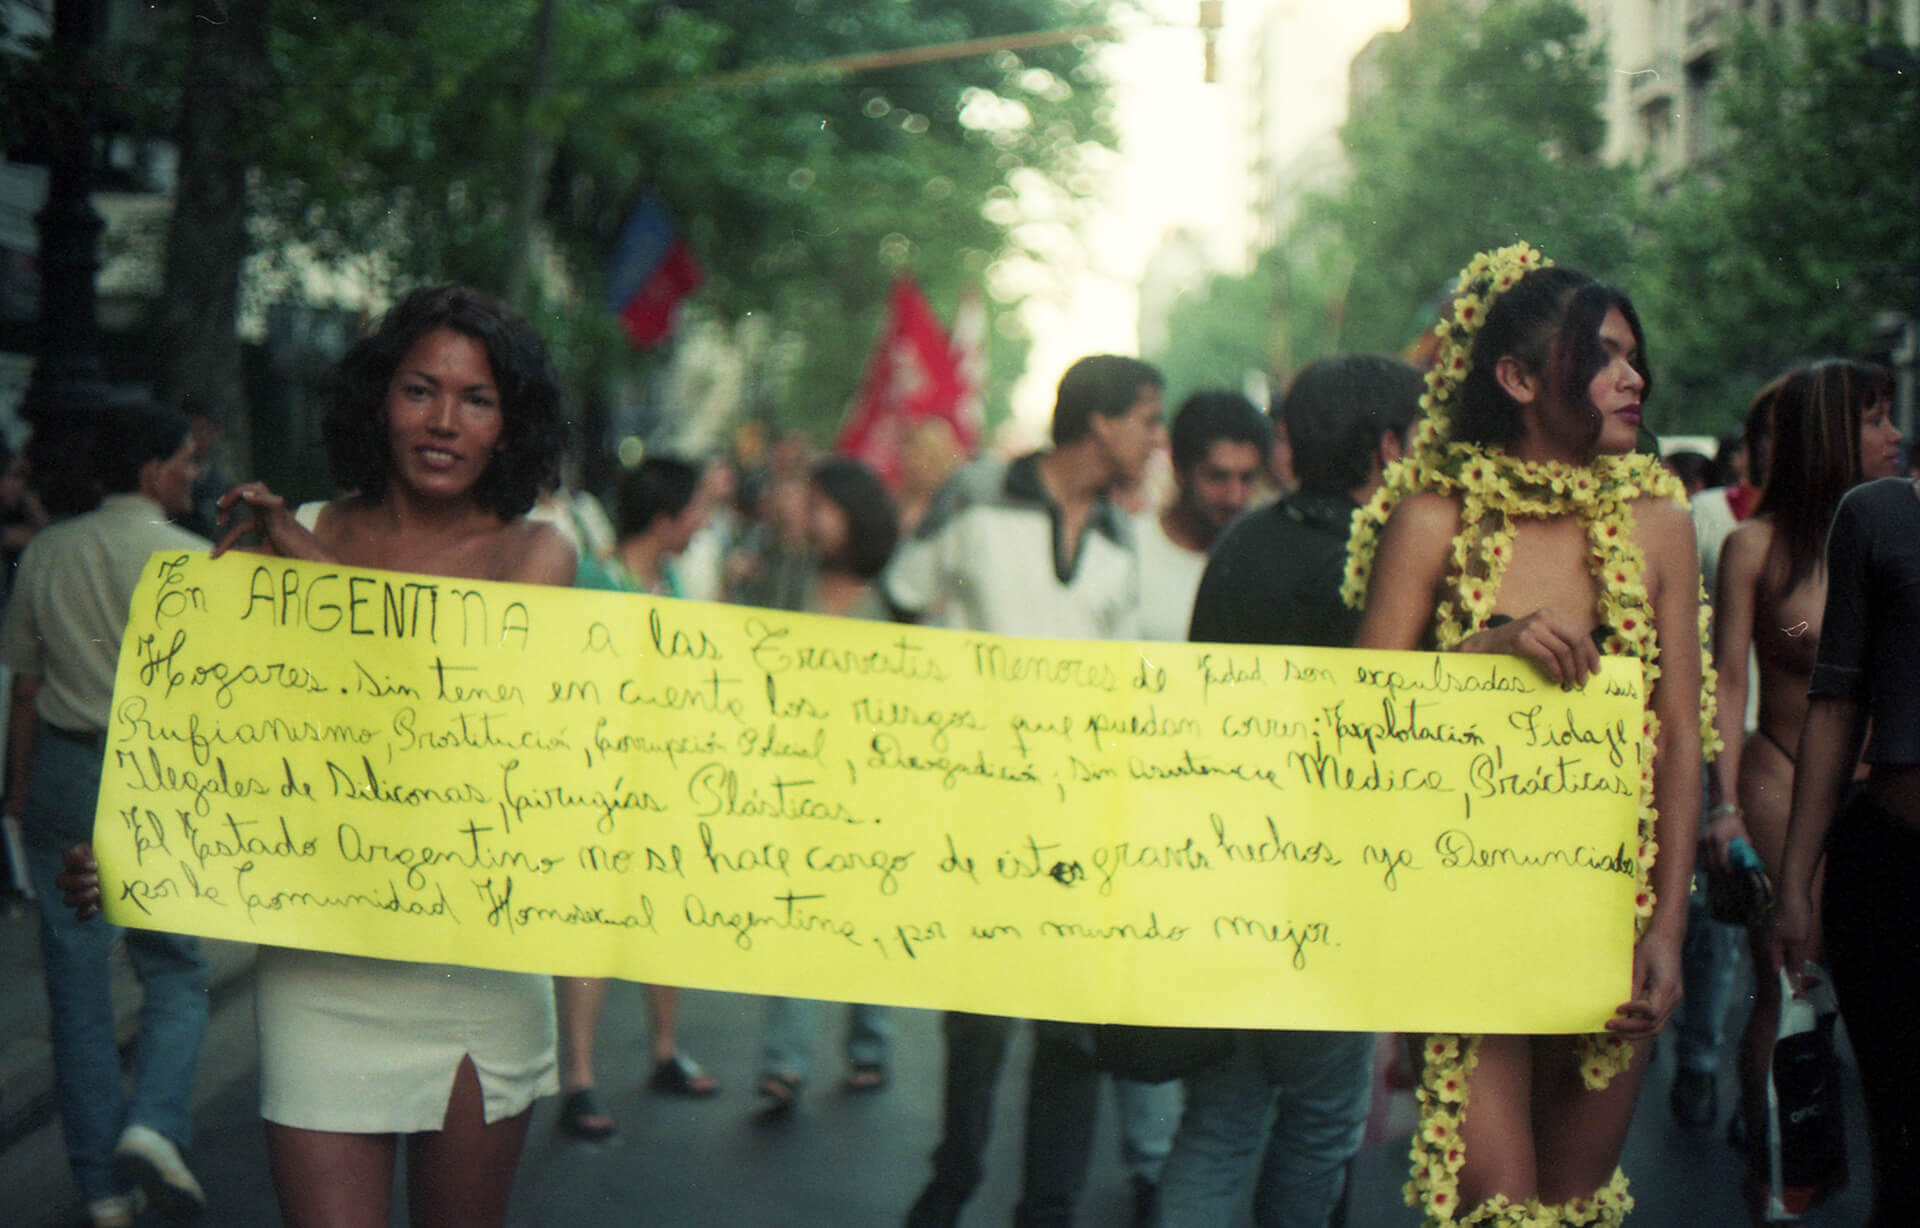 En ARGENTINA a las Travestis Menores de Edad son expulsadas de sus
Hogares. Sin tener en cuenta los riesgos que puedan correr; Explotación, Fiolaje,
Rufianismo, Prostitución, Corrupción Policial, Drogadición; sin asistencia Medica, Prácticas
Ilegales de Siliconas, Cirugías Plásticas.
El Estado Argentino no se hace cargo de éstos graves hechos ya Denunciados
por la Comunidad Homosexual Argentina, por un mundo mejor.